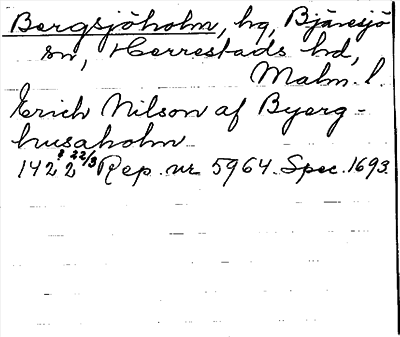 Bergsjöholm, hg, Bjäresjö
sn, Herrestads hd,
Malm. l.
Erich Nilson af Byerg-
husaholm
1422 22/3 Rep. nr 5964. Spec. 1693.